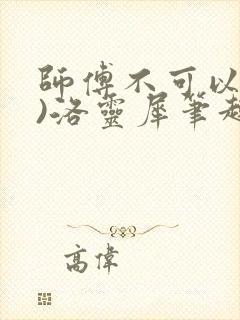 師傅不可以
)洛靈犀筆趣
高偉